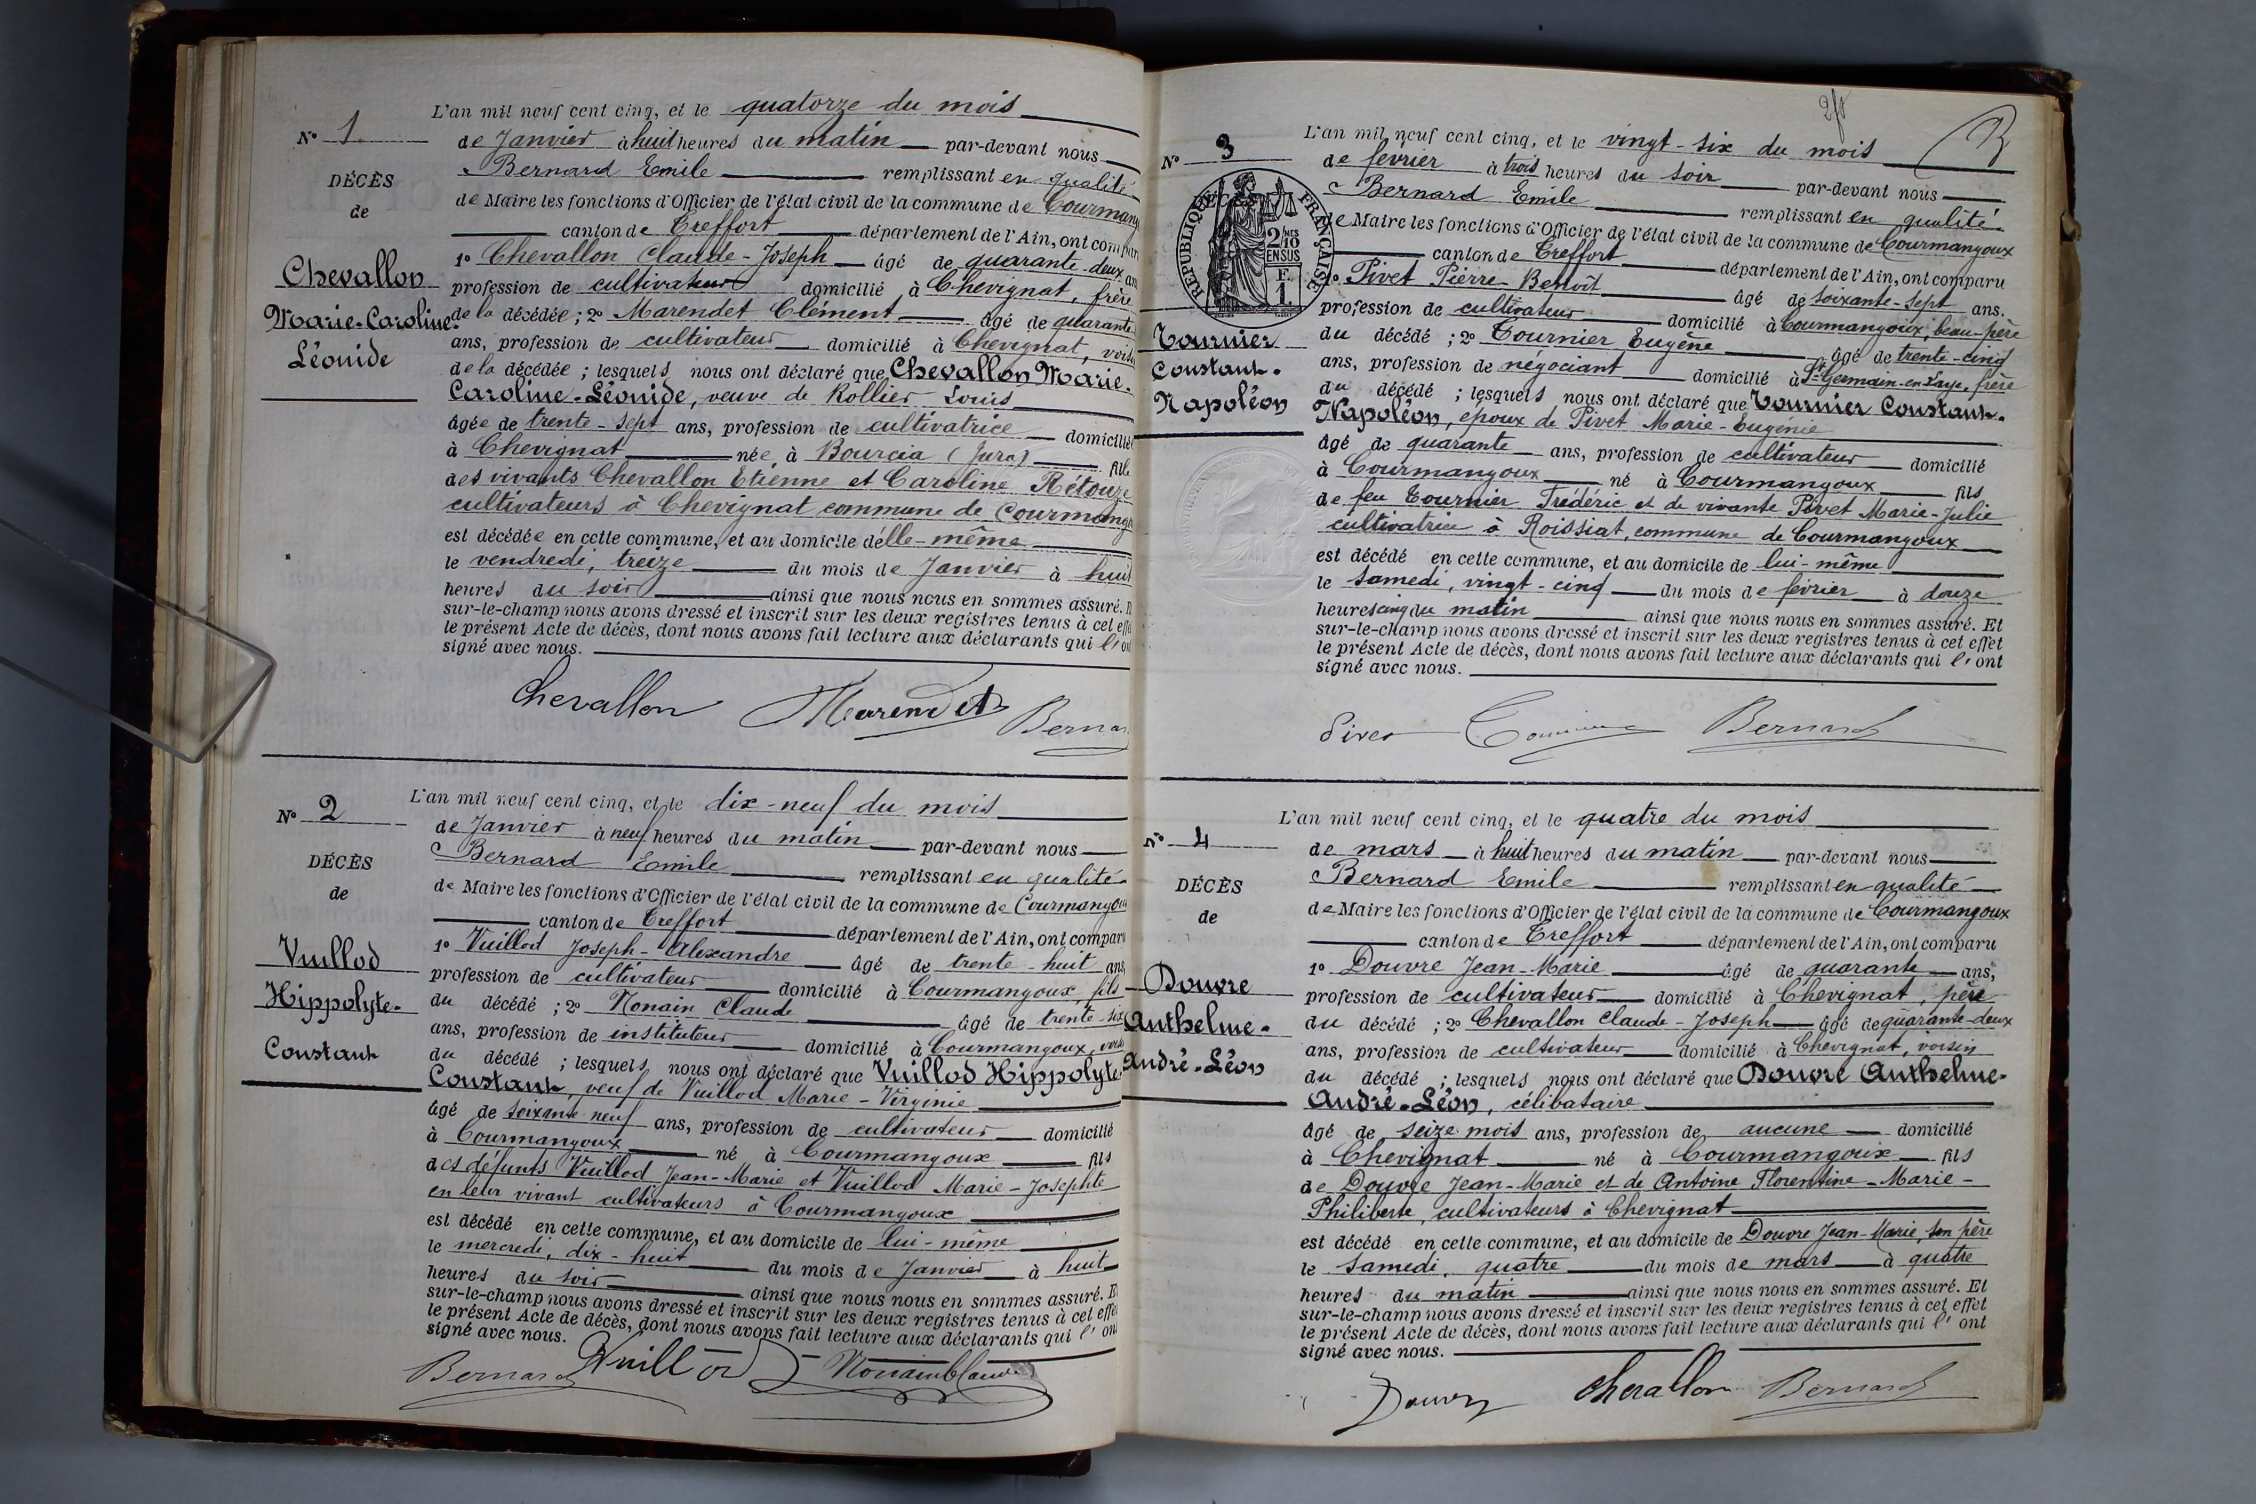 N° 1
DÉCÈS
de
Chevallon
Marie-Caroline-
Léonide
L'an mil neuf cent cinq, et le quatorze du mois
de Janvier à huit heures du matin par-devant nous
Bernard Emile remplissant en qualité
de Maire les fonctions d'Officier de l'état civil de la commune de Courmang
canton de Treffort département de l'Ain, ont compar
1° Chevallon Claude-Joseph âgé de quarante-deux an
profession de cultivateur domicilié à Chevignat, frère
de la décédée ; 2° Marendet Clément âgé de quarante
ans, profession de cultivateur domicilié à Chevignat, vois
de la décédée ; lesquels nous ont déclaré que Chevallon Marie-
Caroline-Léonide, veuve de Rollier Louis
âgée de trente-sept ans, profession de cultivatrice domiciliée
à Chevignat née à Bourcia (Jura) fille
des vivants Chevallon Etienne et Caroline Rétouze
cultivateurs à Chevignat commune de Courmang
est décédée en cette commune, et au domicile d'elle-même
le vendredi, treize du mois de Janvier à huit
heures du soir ainsi que nous nous en sommes assuré. E
sur-le-champ nous avons dressé et inscrit sur les deux registres tenus à cet effe
le présent Acte de décès, dont nous avons fait lecture aux déclarants qui l'on
signé avec nous.
Chevallon Marendet Bernar
N° 2
DÉCÈS
de
Vuillod
Hippolyte-
Constant
L'an mil neuf cent cinq, et le dix-neuf du mois
de Janvier à neuf heures du matin par-devant nous
Bernard Emile remplissant en qualité
de Maire les fonctions d'Officier de l'état civil de la commune de Courmangou
canton de Treffort département de l'Ain, ont comparu
1° Vuillod Joseph-Alexandre âgé de trente-huit ans,
profession de cultivateur domicilié à Courmangoux, fils
du décédé ; 2° Nonain Claude âgé de trente-six
ans, profession de instituteur domicilié à Courmangoux, voisi
du décédé ; lesquels nous ont déclaré que Vuillod Hippolyte-
Constant, veuf de Vuillod Marie-Virginie
âgé de soixante neuf ans, profession de cultivateur domicilié
à Courmangoux né à Courmangoux fils
des défunts Vuillod Jean-Marie et Vuillod Marie-Josephte
en leur vivant cultivateurs à Courmangoux
est décédé en cette commune, et au domicile de lui-même
le mercredi, dix-huit du mois de Janvier à huit
heures du soir ainsi que nous nous en sommes assuré. E
sur-le-champ nous avons dressé et inscrit sur les deux registres tenus à cet effe
le présent Acte de décès, dont nous avons fait lecture aux déclarants qui l'on
signé avec nous.
Bernard Vuillod Nonain Claude
N° 3
RÉPUBLIQUE FRANÇAISE
2/10 EN SUS
F. 1.
Tournier
Constant-
Napoléon
L'an mil neuf cent cinq, et le vingt-six du mois
de février à trois heures du soir par-devant nous
Bernard Emile remplissant en qualité
de Maire les fonctions d'Officier de l'état civil de la commune de Courmangoux
canton de Treffort département de l'Ain, ont comparu
1° Pivet Pierre Benoît âgé de soixante-sept ans,
profession de cultivateur domicilié à Courmangoux, beau-père
du décédé ; 2° Tournier Eugène âgé de trente-cinq
ans, profession de négociant domicilié à St-Germain-en-Laye, frère
du décédé ; lesquels nous ont déclaré que Tournier Constant-
Napoléon, époux de Pivet Marie-Eugénie
âgé de quarante ans, profession de cultivateur domicilié
à Courmangoux né à Courmangoux fils
de feu Tournier Frédéric et de vivante Pivet Marie-Julie
cultivatrice à Roissiat, commune de Courmangoux
est décédé en cette commune, et au domicile de lui-même
le samedi, vingt-cinq du mois de février à douze
heures cinq du matin ainsi que nous nous en sommes assuré. Et
sur-le-champ nous avons dressé et inscrit sur les deux registres tenus à cet effet
le présent Acte de décès, dont nous avons fait lecture aux déclarants qui l'ont
signé avec nous.
Pivet Tournier Bernard
N° 4
DÉCÈS
de
Douvre
Anthelme-
André-Léon
L'an mil neuf cent cinq, et le quatre du mois
de mars à huit heures du matin par-devant nous
Bernard Emile remplissant en qualité
de Maire les fonctions d'Officier de l'état civil de la commune de Courmangoux
canton de Treffort département de l'Ain, ont comparu
1° Douvre Jean-Marie âgé de quarante ans,
profession de cultivateur domicilié à Chevignat, père
du décédé ; 2° Chevallon Claude-Joseph âgé de quarante-deux
ans, profession de cultivateur domicilié à Chevignat, voisin
du décédé ; lesquels nous ont déclaré que Douvre Anthelme-
André-Léon, célibataire
âgé de seize mois ans, profession de aucune domicilié
à Chevignat né à Courmangoux fils
de Douvre Jean-Marie et de Antoine Florentine-Marie-
Philiberte, cultivateurs à Chevignat
est décédé en cette commune, et au domicile de Douvre Jean-Marie, son père
le samedi, quatre du mois de mars à quatre
heures du matin ainsi que nous nous en sommes assuré. Et
sur-le-champ nous avons dressé et inscrit sur les deux registres tenus à cet effet
le présent Acte de décès, dont nous avons fait lecture aux déclarants qui l'ont
signé avec nous.
Douvre Chevallon Bernard